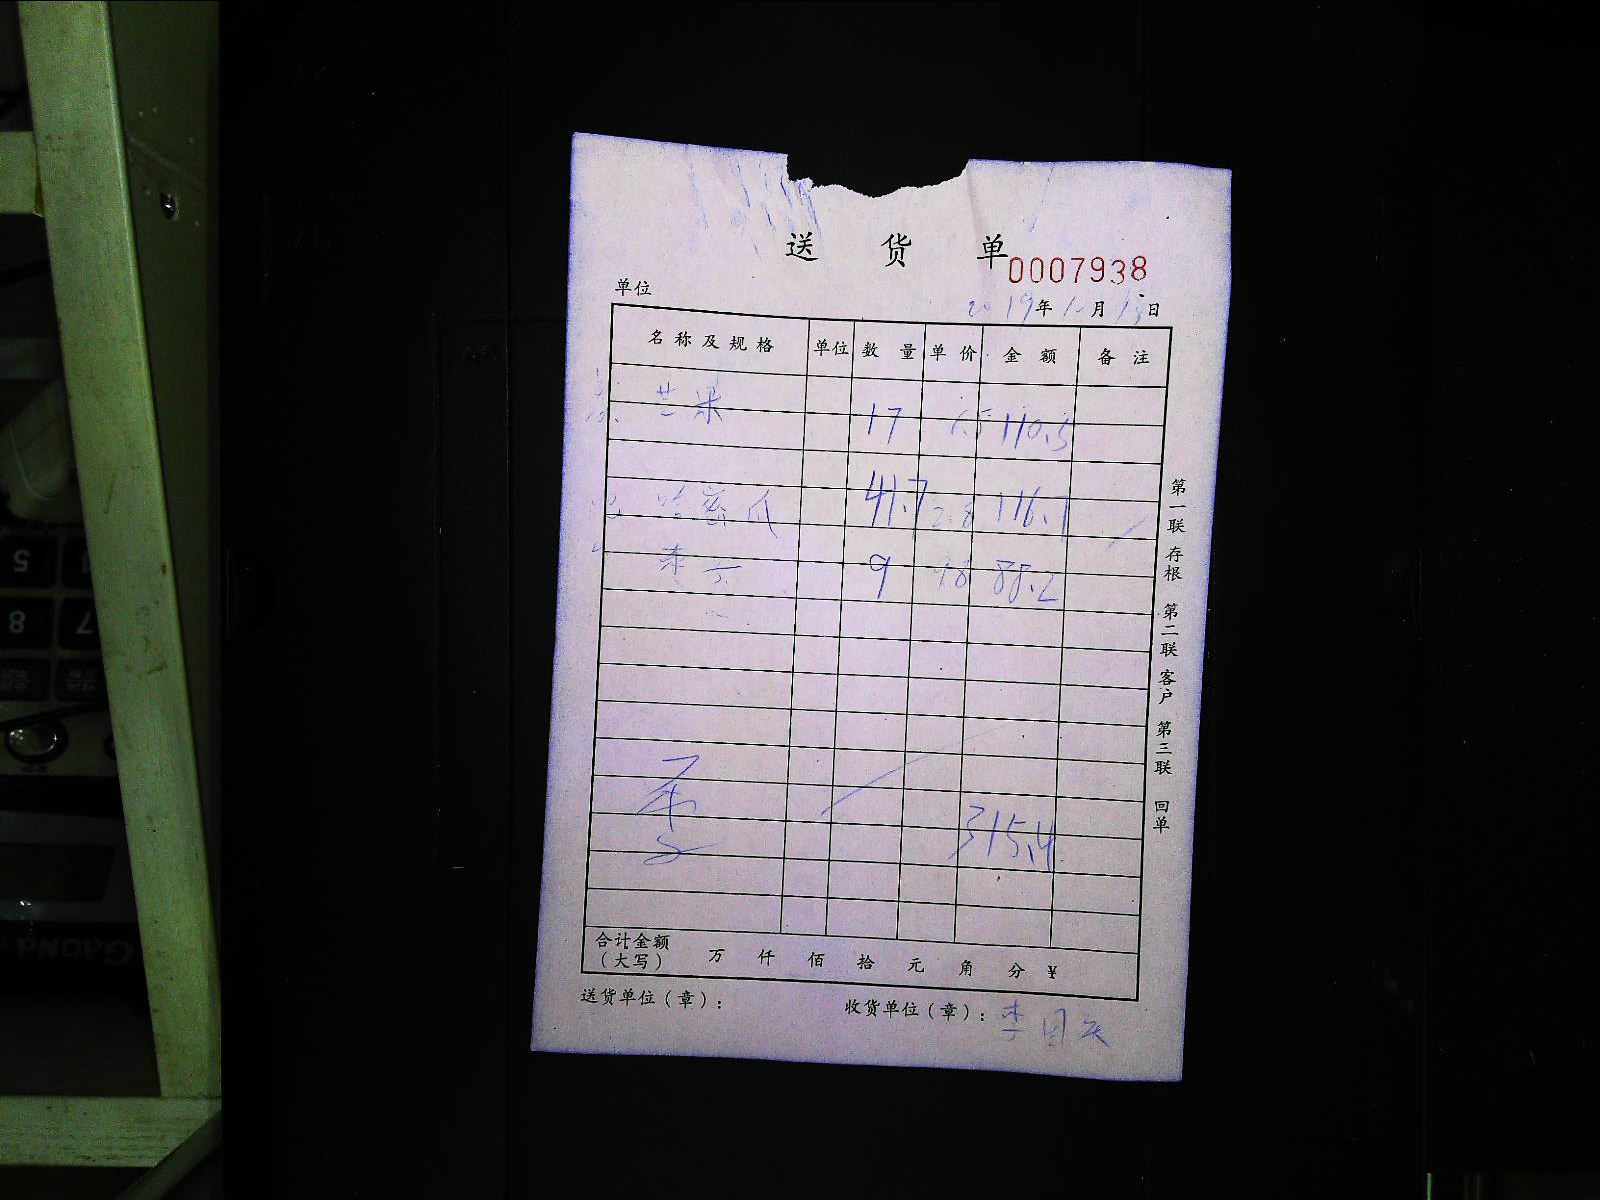 送货单
0007938
单位
2019年 月 日
名称及规格 单位 数量 单价 金额 备注
芒果 17 6.5 110.5
哈密瓜 41.7 2.8 116.7
李子 9 9.8 88.2
李
315.4
合计金额（大写） 万 仟 佰 拾 元 角 分 ¥
送货单位（章）： 收货单位（章）：李国庆
第一联 存根 第二联 客户 第三联 回单
5
8 7